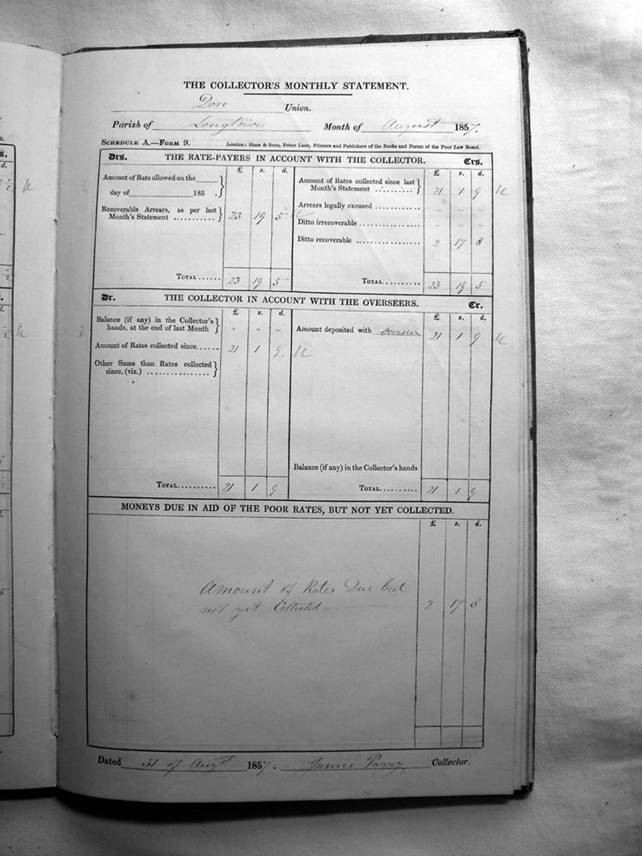 THE COLLECTOR'S MONTHLY STATEMENT.
Dore Union.
Parish of Longtown Month of August 1857.
SCHEDULE A.—FORM 9. London: Shaw & Sons, Fetter Lane, Printers and Publishers of the Books and Forms of the Poor Law Board.
Drs. THE RATE-PAYERS IN ACCOUNT WITH THE COLLECTOR. Crs.
£ s. d. £ s. d.
Amount of Rate allowed on the
day of 185 .
Recoverable Arrears, as per last
Month's Statement 23 19 5
TOTAL 23 19 5
Amount of Rates collected since last
Month's Statement 21 1 9
Arrears legally excused
Ditto irrecoverable
Ditto recoverable 2 17 8
TOTAL 23 19 5
Dr. THE COLLECTOR IN ACCOUNT WITH THE OVERSEERS. Cr.
£ s. d. £ s. d.
Balance (if any) in the Collector's
hands, at the end of last Month " " "
Amount of Rates collected since 21 1 9
Other Sums than Rates collected
since, (viz.)
TOTAL 21 1 9
Amount deposited with Overseer 21 1 9
Balance (if any) in the Collector's hands
TOTAL 21 1 9
MONEYS DUE IN AID OF THE POOR RATES, BUT NOT YET COLLECTED.
£ s. d.
Amount of Rates Due but
not yet Collected 2 17 8
Dated 31 of Augt 1857. James Parry Collector.